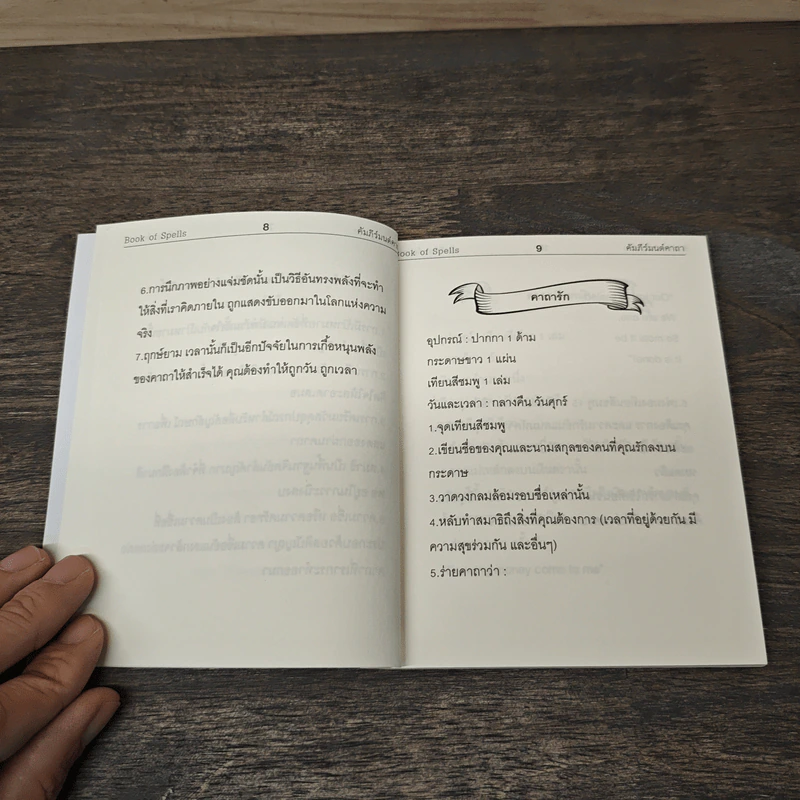 Book of Spells
8
คัมภีร์มนต์คาถา
6.การนึกภาพอย่างแจ่มชัดนั้น เป็นวิธีอันทรงพลังที่จะทำ
ให้สิ่งที่เราคิดภายใน ถูกแสดงขับออกมาในโลกแห่งความ
จริง
7.ฤกษ์ยาม เวลานั้นก็เป็นอีกปัจจัยในการเกื้อหนุนพลัง
ของคาถาให้สำเร็จได้ คุณต้องทำให้ถูกวัน ถูกเวลา
Book of Spells
9
คัมภีร์มนต์คาถา
คาถารัก
อุปกรณ์ : ปากกา 1 ด้าม
กระดาษขาว 1 แผ่น
เทียนสีชมพู 1 เล่ม
วันและเวลา : กลางคืน วันศุกร์
1.จุดเทียนสีชมพู
2.เขียนชื่อของคุณและนามสกุลของคนที่คุณรักลงบน
กระดาษ
3.วาดวงกลมล้อมรอบชื่อเหล่านั้น
4.หลับทำสมาธิถึงสิ่งที่คุณต้องการ (เวลาที่อยู่ด้วยกัน มี
ความสุขร่วมกัน และอื่นๆ)
5.ร่ายคาถาว่า :